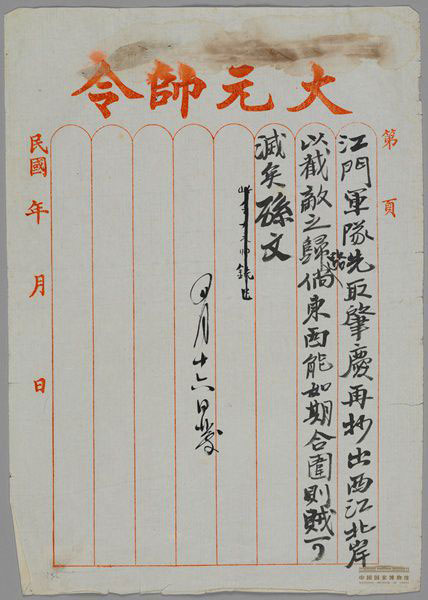 大元帥令
第　頁
江門軍隊先取肇慶再抄出西江北岸
以截敵之歸路倘東西能如期合圍則賊可
滅矣孫文
四月十六日發
民國　年　月　日
中国国家博物馆